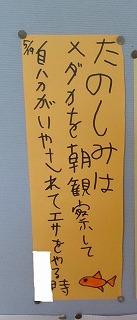 たのしみは
メダカを朝観察して
自分がいやされてエサをやる時
5/19